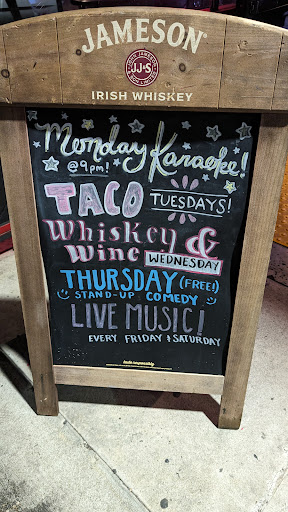 JAMESON
JOHN JAMESON
JJ&S
IRISH WHISKEY
Monday Karaoke!
@ 9pm!
TACO TUESDAYS!
Whiskey &
Wine WEDNESDAY
THURSDAY (FREE!)
STAND-UP COMEDY
LIVE MUSIC!
EVERY FRIDAY & SATURDAY
taste responsibly.